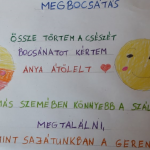 MEGBOCSÁTÁS
ÖSSZE TÖRTEM A CSÉSZÉT
BOCSÁNATOT KÉRTEM
ANYA ÁTÖLELT
MÁS SZEMÉBEN KÖNNYEBB A SZÁL
MEGTALÁLNI,
MINT SAJÁTUNKBAN A GEREN